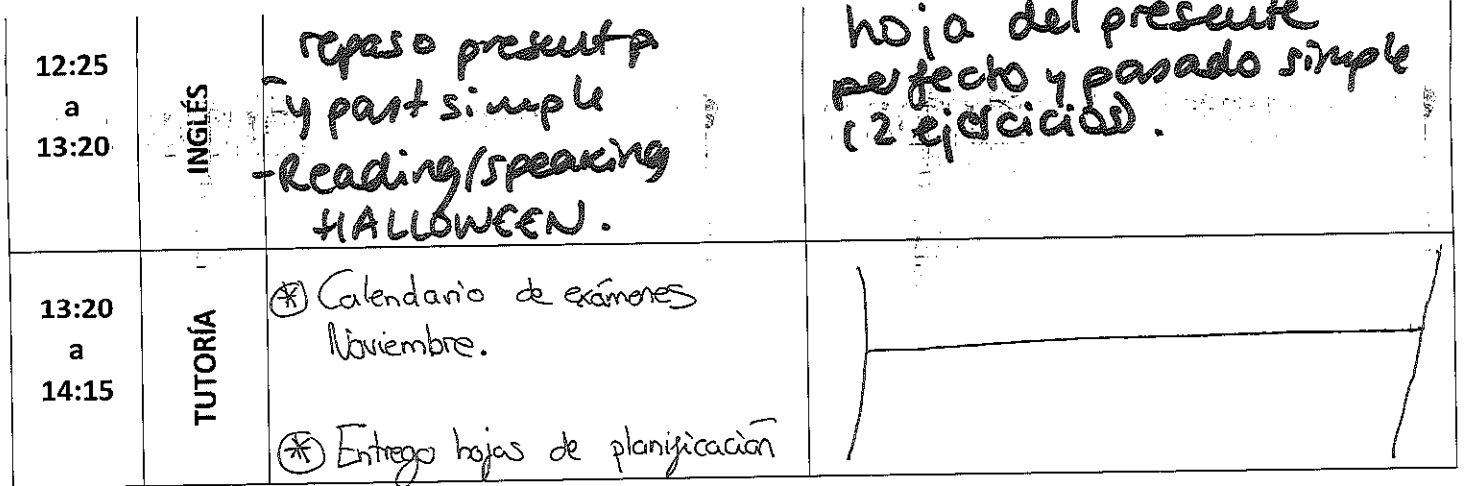 12:25
a
13:20
INGLÉS
repaso present p
- y past simple
- Reading/speaking
HALLOWEEN.
hoja del presente
perfecto y pasado simple
(2 ejercicios).
13:20
a
14:15
TUTORÍA
* Calendario de exámenes
Noviembre.
* Entrego hojas de planificación